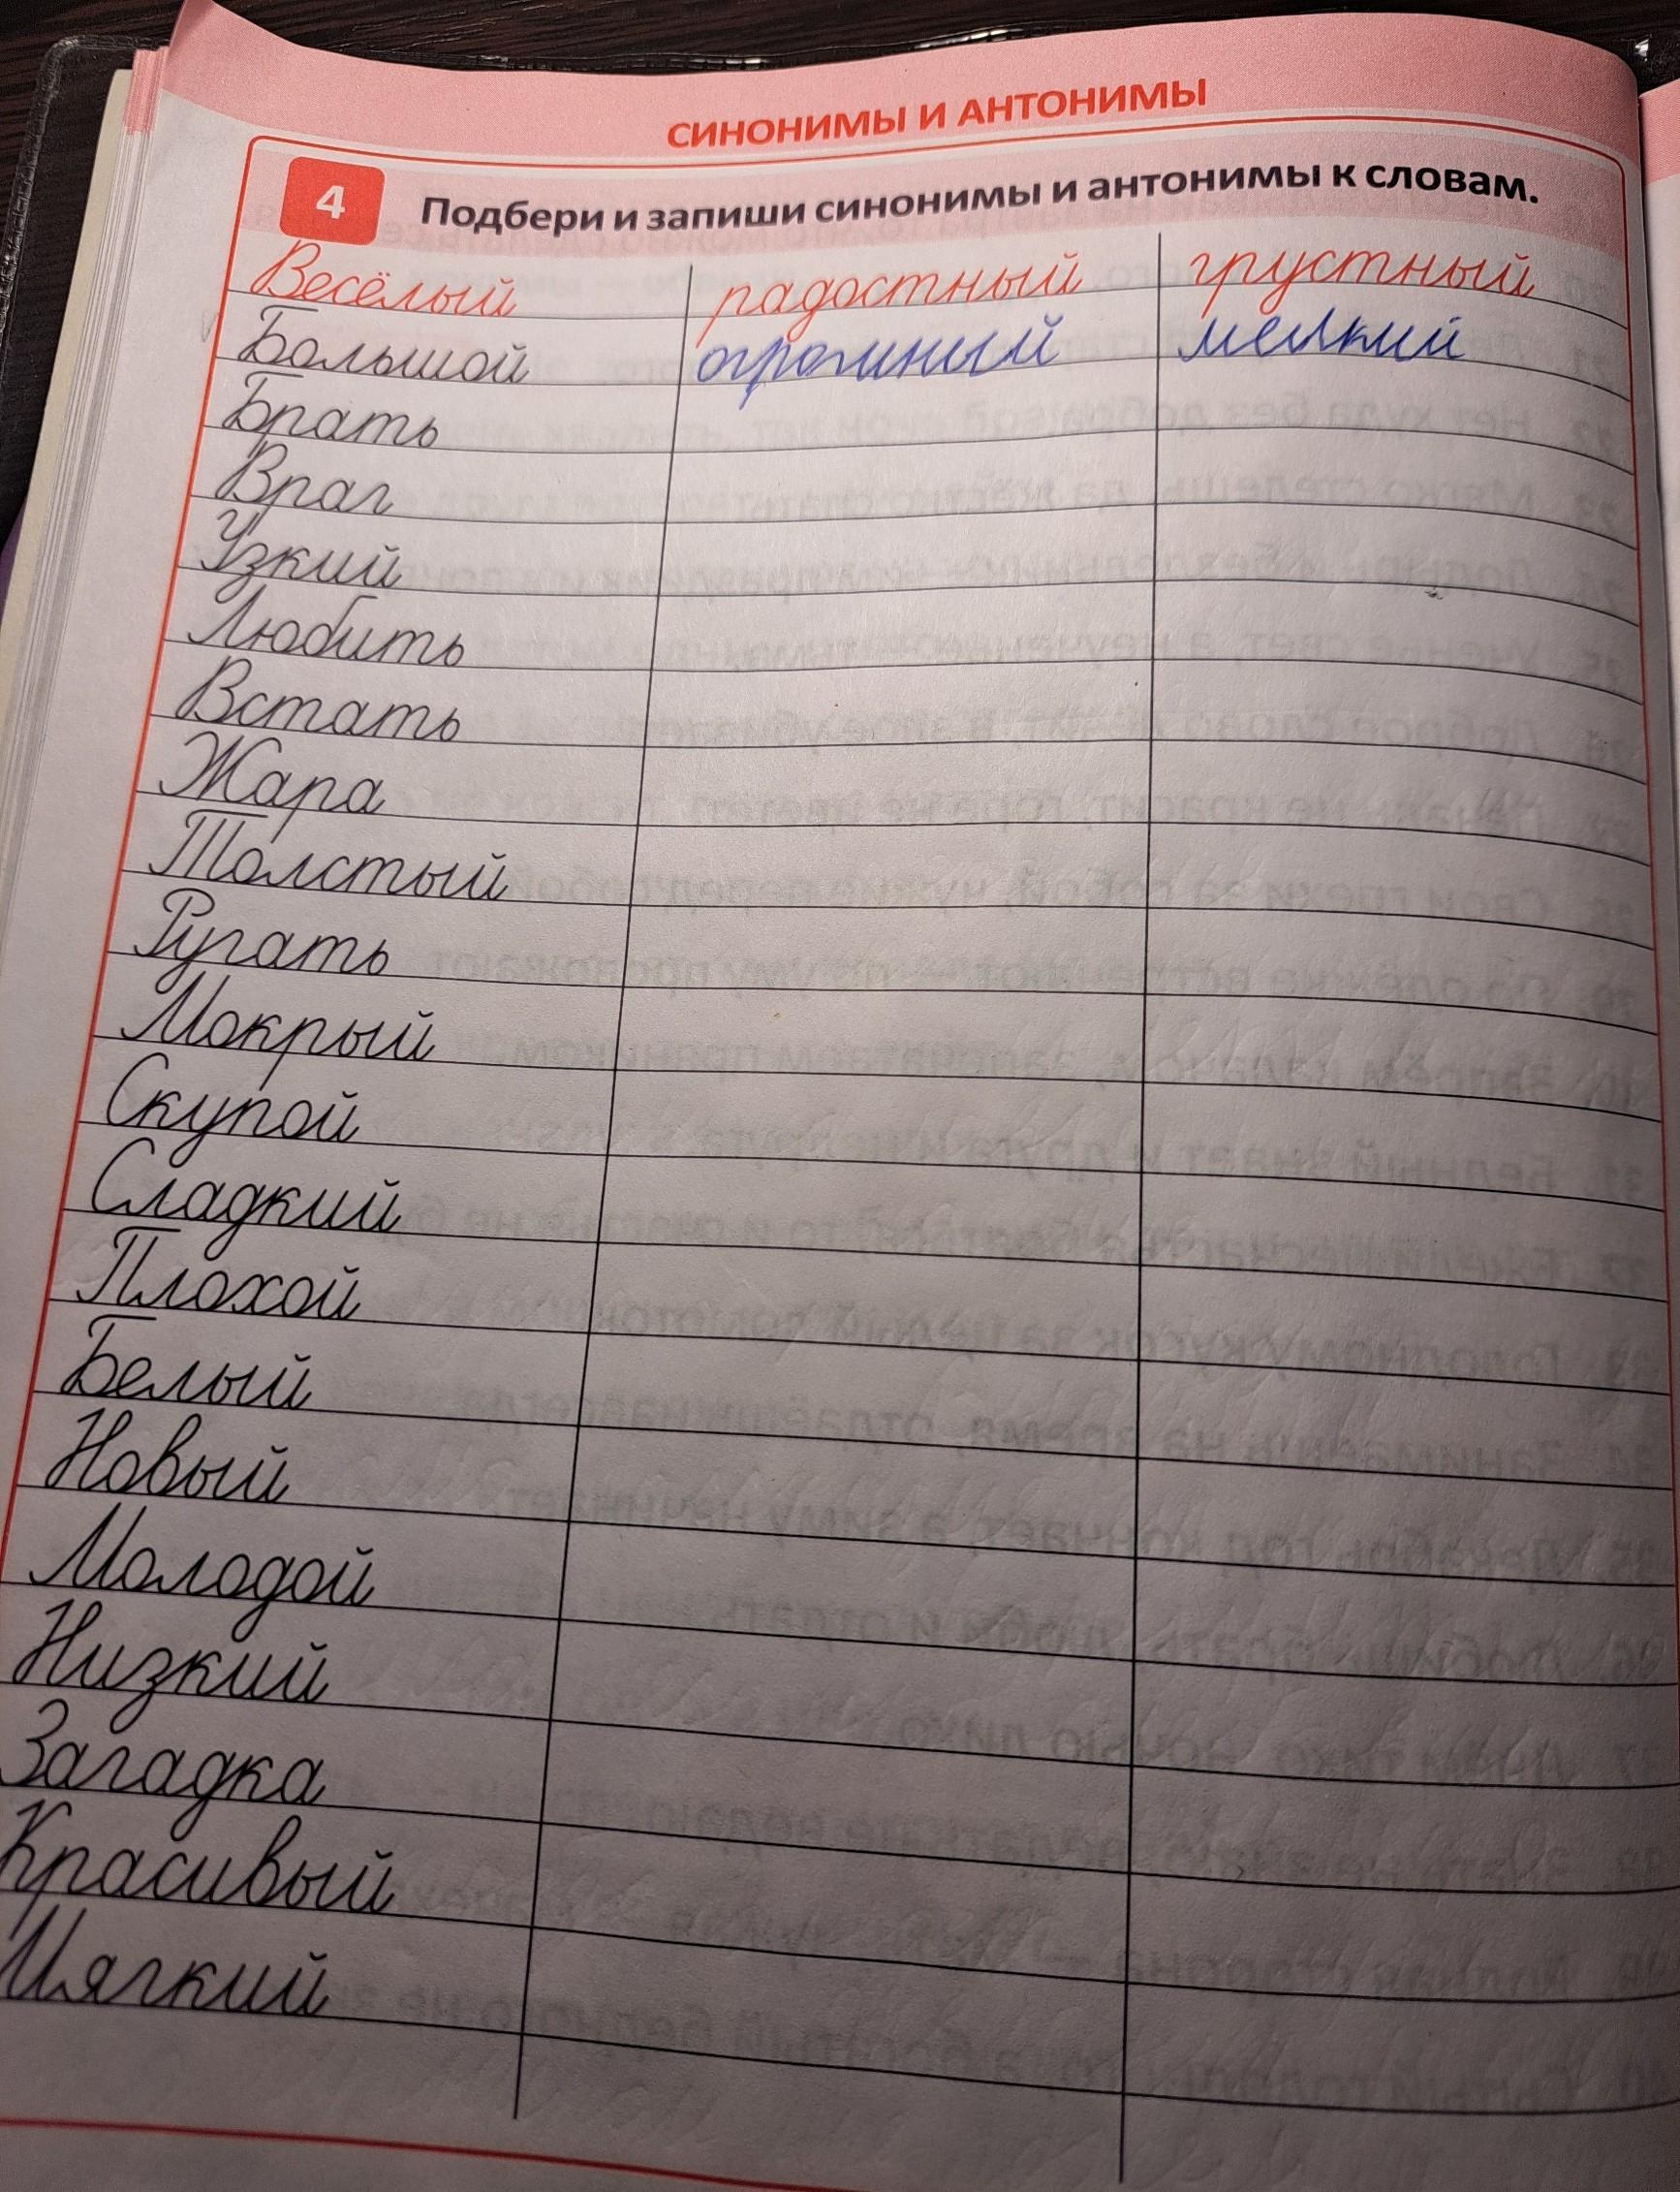 СИНОНИМЫ И АНТОНИМЫ
4 Подбери и запиши синонимы и антонимы к словам.
Весёлый радостный грустный
Большой огромный мелкий
Брать
Враг
Узкий
Любить
Встать
Жара
Толстый
Ругать
Мокрый
Скупой
Сладкий
Плохой
Белый
Новый
Молодой
Низкий
Загадка
Красивый
Мягкий